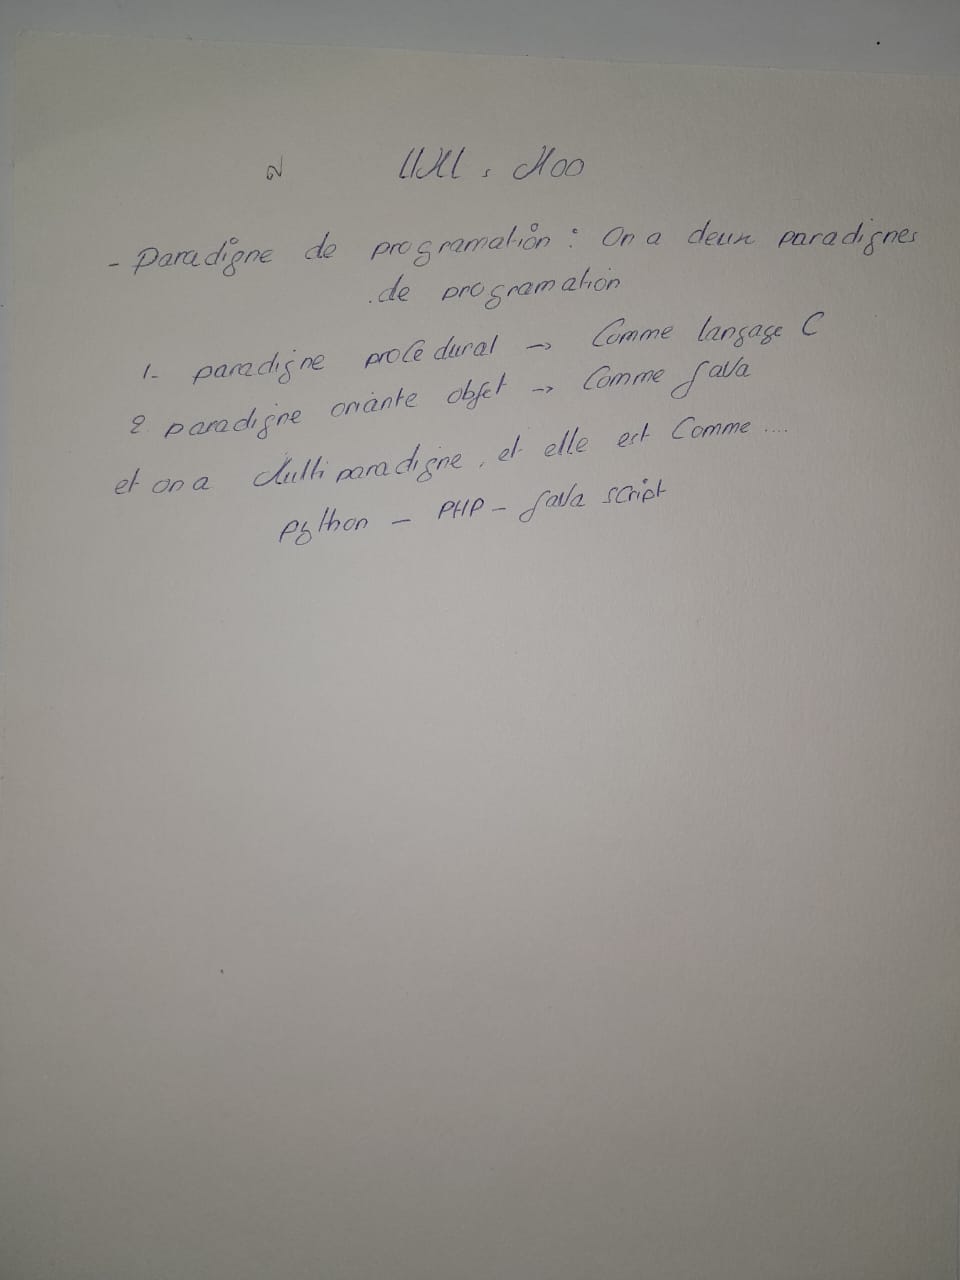 UML : Moo
- Paradigne de programation : On a deux paradignes
de programation
1- paradigne procédural → Comme langage C
2 paradigne oriante objet → Comme Java
et on a Multi paradigne, et elle est Comme ....
Python - PHP - Java script